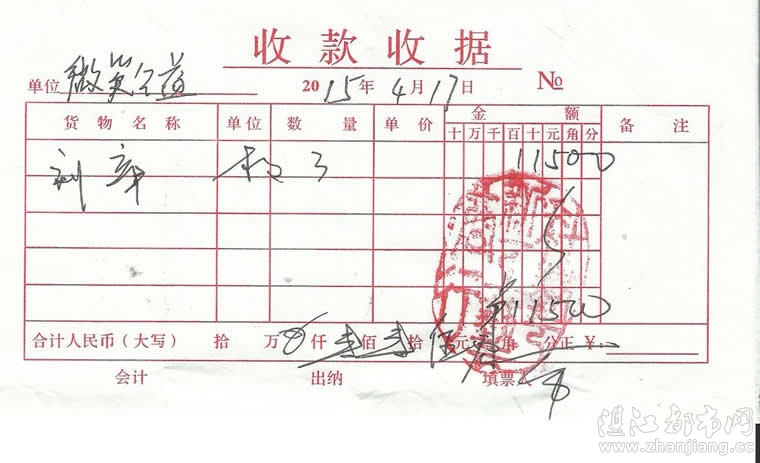 收款收据
单位 微笑公益 2015年4月17日 №
货物名称 单位 数量 单价 金额 备注
十 万 千 百 十 元 角 分
刻章 11500
¥11500
合计人民币（大写） 拾 万 仟 壹 佰 壹 拾 伍 元 角 分正 ¥
会计 出纳 填票人
湛江都市网
www.zhanjiang.cc